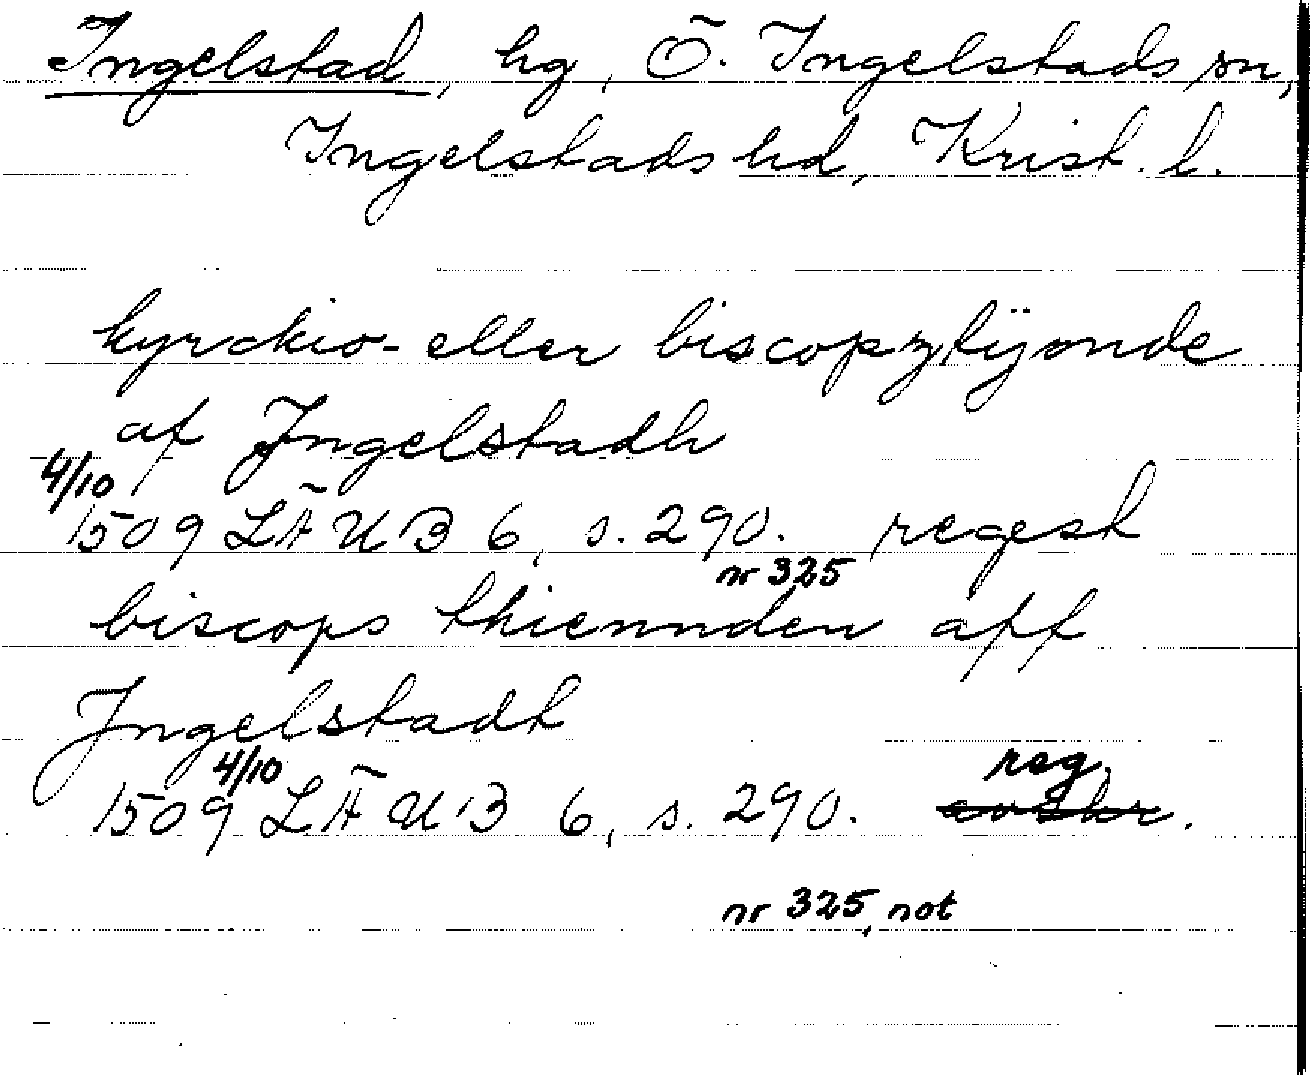 Ingelstad, hg, Ö. Ingelstads sn,
Ingelstads hd, Krist. l.
kyrckio- eller biscopztÿonde
af Jngelstadh
4/10
1509 LÄUB 6, s. 290. regest
nr 325
biscops thiennden aff
Jngelstadt
4/10 reg.
1509 LÄUB 6, s. 290. avskr.
nr 325, not